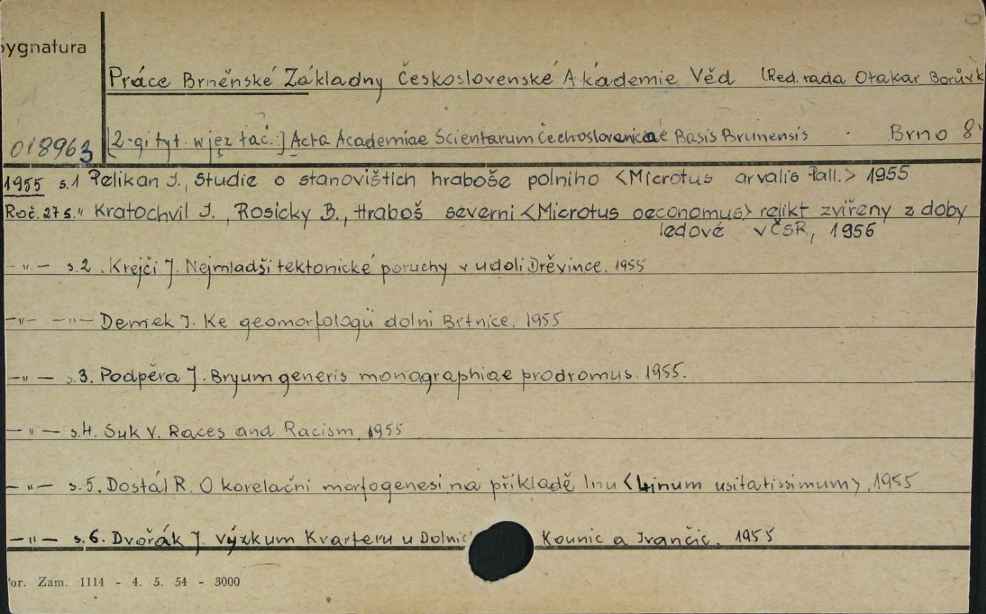 Sygnatura
Práce Brněnské Základny Československé Akademie Věd (Red. rada Otakar Borůvk
018963 [2-gi tyt. w jęz. łac.:] Acta Academiae Scientarum Čechoslovenicae Basis Brunensis . Brno 8°
1955 s.1 Pelikan J., Studie o stanovištich hraboše polniho <Microtus arvalis Pall.> 1955
Roč. 27 s." Kratochvil J., Rosicky B., Hraboš severni <Microtus oeconomus> relikt zviřeny z doby
ledové v ČSR, 1955
-"- s.2. Krejči J. Nejmladši tektonické poruchy v udoli Dřevince. 1955
-"- -"- Demek J. Ke geomorfologii dolni Brtnice. 1955
-"- s.3. Podpěra J. Bryum generis monographiae prodromus. 1955.
-"- s.4. Suk V. Races and Racism, 1955
-"- s.5. Dostál R. O korelačni morfogenesi na přikladě lnu <Linum usitatissimum>, 1955
-"- s.6. Dvořák J. Výzkum Kvarteru u Dolnic Kounic a Ivančic. 1955
or. Zam. 1114 - 4. 5. 54 - 3000